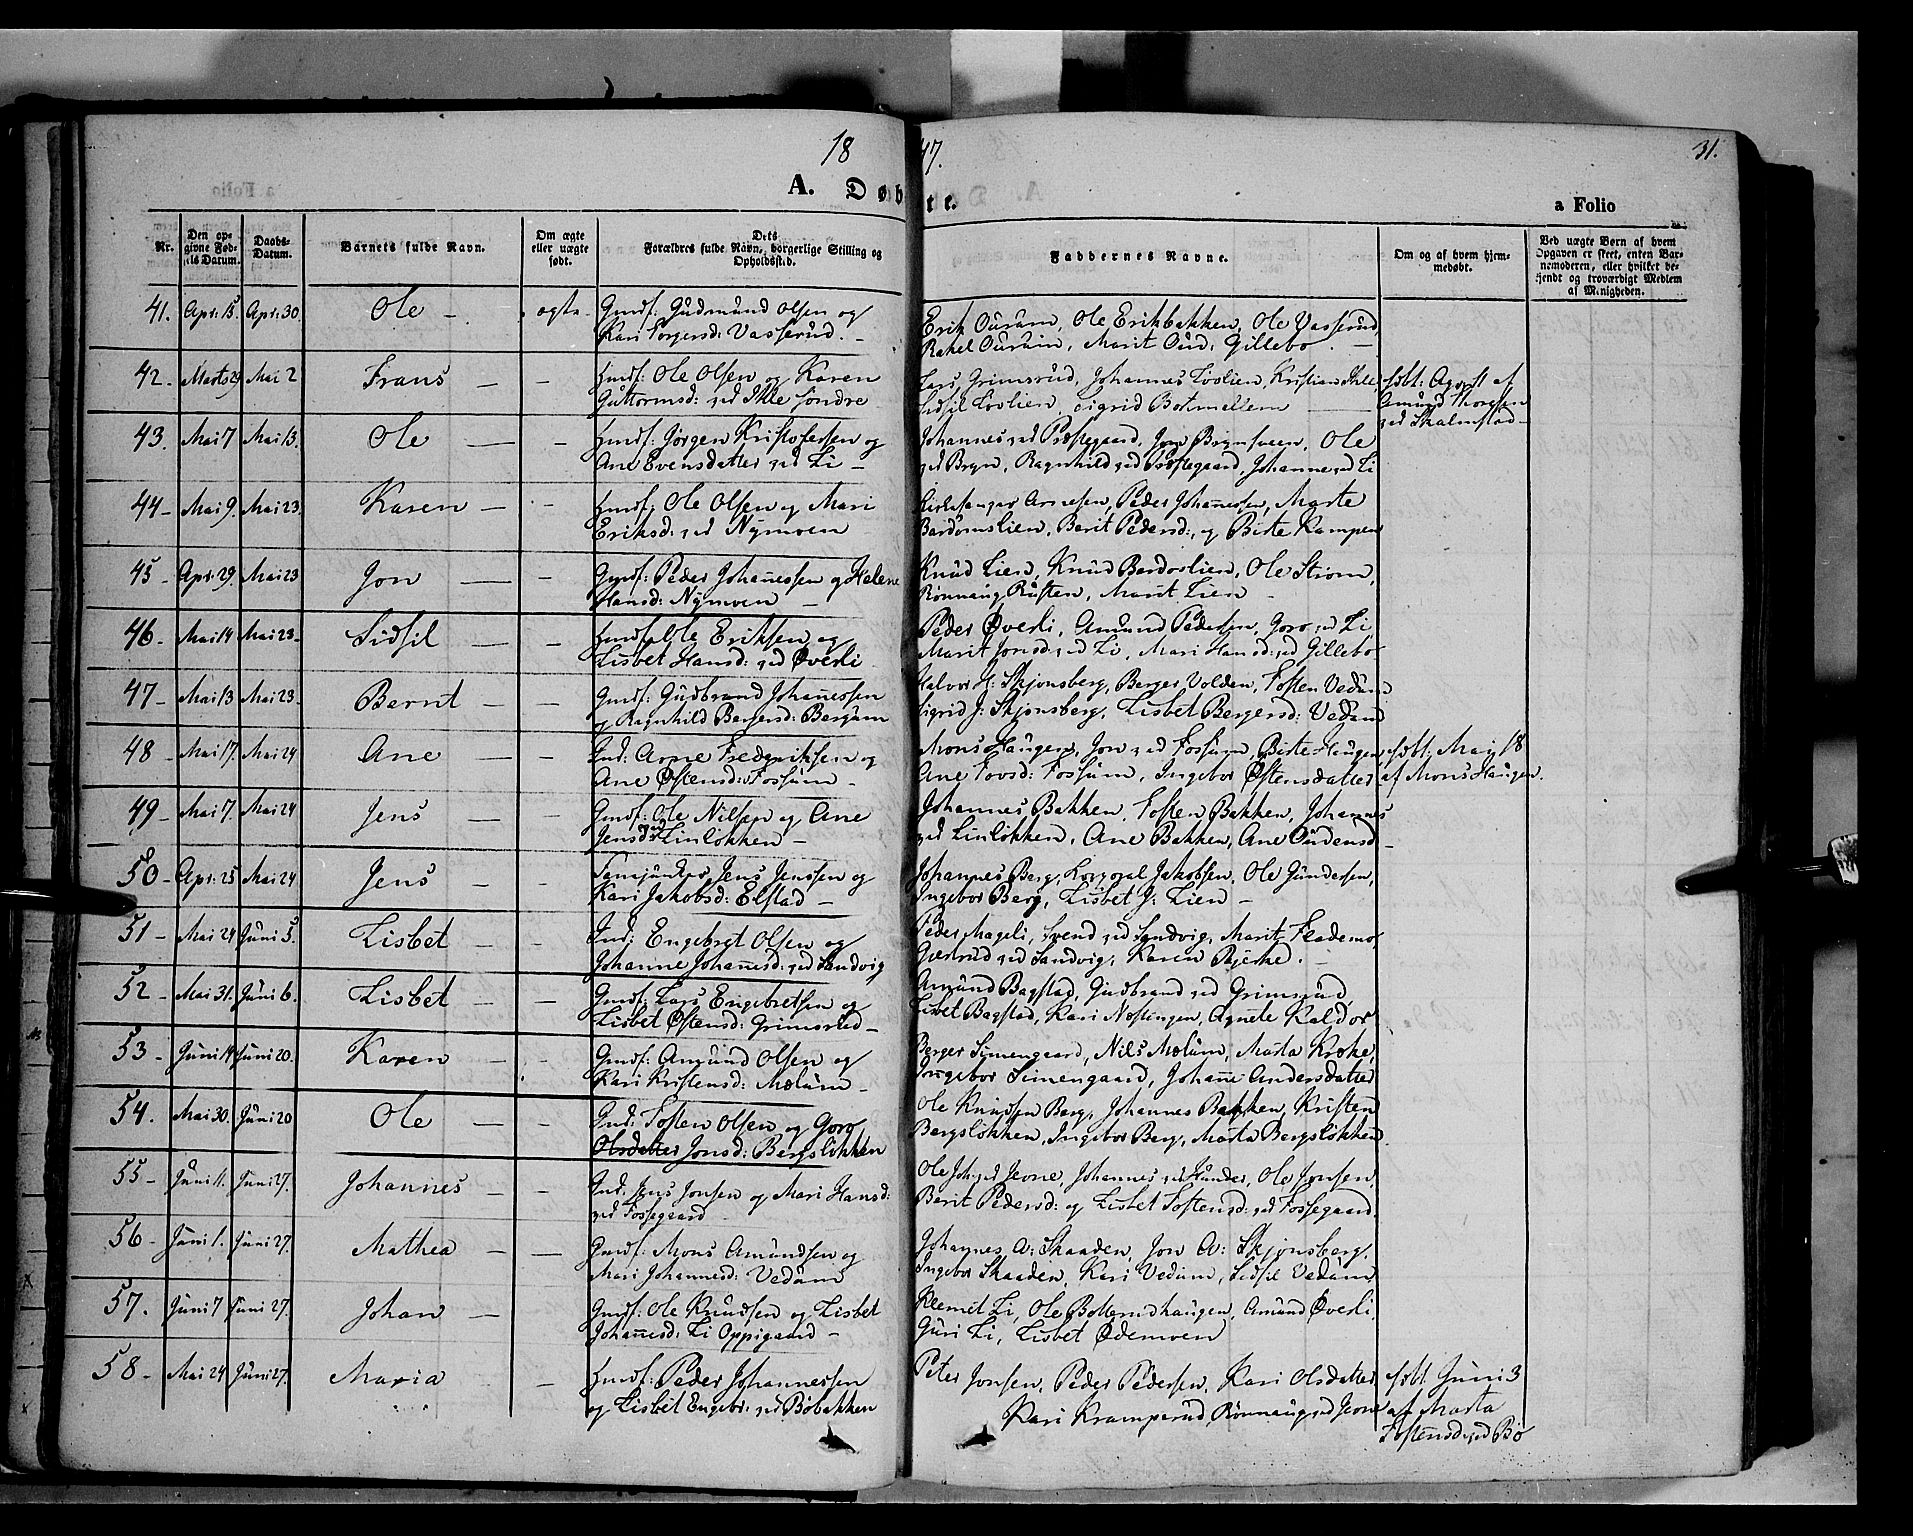 1847.
31.
A. Døbte.
a Folio
Nr.
Den opgivne Fødsels Datum.
Daabs-Datum.
Barnets fulde Navn.
Om ægte eller uægte født.
Dets Forældres fulde Navn, borgerlige Stilling og Opholdssted.
Faddernes Navne.
Om og af hvem hjemmedøbt.
Ved uægte Børn af hvem Opgaven er skeet, enten Barnemoderen, eller hvilket bekjendt og troværdigt Medlem af Menigheden.
41. Apr: 15. Apr: 30. Ole - ægte - Gmdf: Gudmund Olsen og
Kari Torgersd: Vasserud. -
Erik Ouram, Ole Erikbakken, Ole Vasserud,
Rakel Ouram, Marit Oud: Gillebo. -
42 - Marts 29 Mai 2 Frans - - Hmdf: Ole Olsen og Karen
Guttormsd: ved Ihle søndre
Lars Grimsrud, Johannes Lovlien, Kristian Ihle
Sidsil Lovlien, Sigrid Botmellem -
døbt: April af
Amund Thoresen
ved Skalmstad -
43. Mai 7 Mai 13. Ole - - Hmdf: Jörgen Kristofersen og
Ane Evensdatter ved Li -
Johannes ved Præstegaard, Jon Brynsveen, Ole
ved Bryn, Ragnhild ved Præstegaard, Johanne ved Li
44 - Mai 9. Mai 23. Karen - - Hmdf: Ole Olsen og Mari
Eriksd: ved Nymoen
Kirkesanger Arnesen, Peder Johannesen, Marte
Bardomslien, Berit Pedersd:, og Birte Kampen
45 - Apr: 29. Mai 23 Jon - - Gmdf: Peder Johannessen og Helene
Hansd: Nymoen -
Knud Lien, Knud Bardoslien, Ole Strøm,
Rönnaug Rusten, Marit Lien -
46 - Mai 14 Mai 23 - Sidsil - - Hmdf: Ole Eriksen og
Lisbet Hansd: ved Øverli
Peder Øverli, Amund Pedersen, Goro ved Li,
Marit Jonsd: ved Li, Mari Hansd: ved Gillebo
47 - Mai 13 Mai 23 - Bernt - - Gmdf: Gudbrand Johannessen
og Ragnhild Bergersd: Bergum
Halvor H: Skjonsberg, Berger Volden, Tosten Vedum
Sigrid J: Skjonsberg, Lisbet Bergersd: Vedum
48 - Mai 17. Mai 24 Ane - - Ind: Arne Frederiksen og
Ane Østensd: Fossum -
Mons Haugen, Jon ved Fossum, Birte Haugen
Ane Tovsd: Fossum, Ingebor Østensdatter
døbt: Mai 18
af Mons Haugen.
49 - Mai 7. Mai 24 Jens - - Gmdf: Ole Nilsen og Ane
Jensd: ved Linløkken -
Johannes Bakken, Tosten Bakken, Johannes
ved Linløkken, Ane Bakken, Ane Oudensd -
50 - Apr: 25 Mai 24 Jens - - Fanejunker Jens Jenssen og
Kari Jakobsd: Elstad -
Johannes Berg, Korporal Jakobsen, Ole Gundersen,
Ingebor Berg, Lisbet J: Lien -
51 - Mai 24 Juni 5. Lisbet - - Ind: Engebret Olsen og
Johanne Johannesd: ved Sandvig
Peder Mageli, Svend ved Sandvig, Marit Flademo,
Gjertrud ved Sandvig, Karen Bjerke. -
52 - Mai 31. Juni 6. Lisbet - - Gmdf: Lars Engebretsen og
Lisbet Østensd: Grimsrud -
Amund Bagstad, Gudbrand ved Grimsrud,
Lisbet Bagstad, Kari Nostengen, Agnete Kaldor
53 - Juni 14 Juni 20. Karen - - Gmdf: Amund Olsen og
Kari Kristensd: Mælum -
Berger Simengaard, Nils Mælum, Marta Kroke,
Ingebor Simengaard, Johanne Andersdatter
54. Mai 30. Juni 20 Ole - - Ind: Tosten Olsen og Goro
Olsdatter Jonsd: Bergsløkken
Ole Knudsen Berg, Johannes Bakken, Kristen
Bergsløkken, Ingebor Berg, Marta Bergsløkken.
55 - Juni 11. Juni 27. Johannes - - Ind: Jens Jonsen og Mari Hansd:
ved Fossegaard
Ole Joh: ved Jeone, Johannes ved Hunder, Ole Jonsen,
Berit Pedersd: og Lisbet Tostensd: ved Fossegaard.
56 - Juni 1. Juni 27. Mathea - - Gmdf: Mons Amundsen og
Mari Johannesd: Vedum
Johannes A: Skaaden, Jon A: Skjonsberg,
Ingebor Skaaden, Kari Vedum, Sidsil Vedum
57. Juni 7 Juni 27. Johan - Gmdf: Ole Knudsen og Lisbet
Johannesd: Li Oppigaard -
Klemet Li, Ole Botterudhaugen, Amund Øverli
Guri Li, Lisbet Ødemoen
58 - Mai 24 Juni 27. Maria - Hmdf: Peder Johannessen
og Lisbet Engebr: ved Böbakken
Peter Jonsen, Peder Pedersen, Kari Olsdatter
Kari Kramperud, Rönnaug ved Jeone
døbt Juni 3
af Marta
Tostensd ved Bö